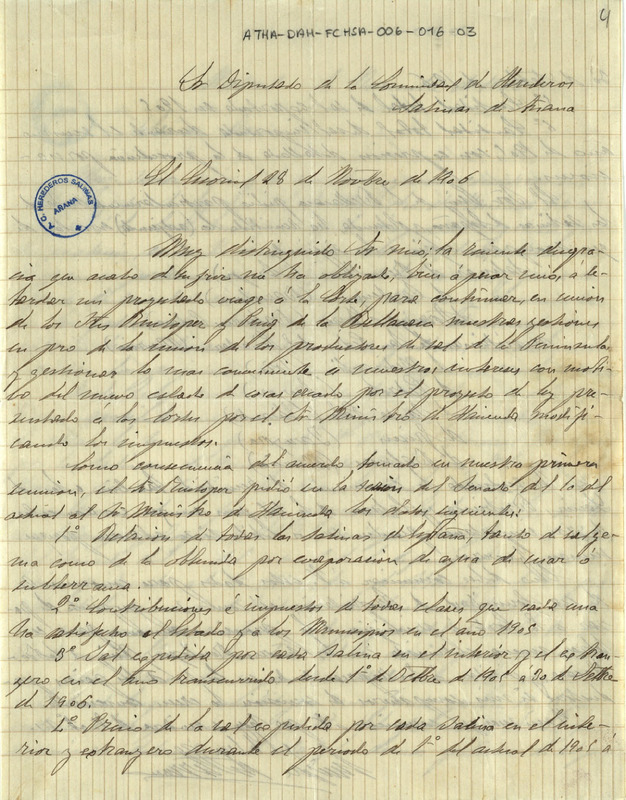 4
ATHA-DAH-FCHSA-006-016-03
Sr Diputado de la Comunidad de Herederos
Salinas de Anana
El Guorial 28 de Novbre de 1906
A. C. HEREDEROS SALINAS
ARANA
Muy distinguido Sr mio: la reciente desgra-
cia que acabo de sufrir me ha obligado, bien á pesar mio, á re-
tardar mi proyectado viage á la Corte, para continuar, en union
de los Sres y Puig de la nuestras gestiones
en pro de la union de los productores de sal de la Peninsula
y gestionar lo mas conveniente á nuestros intereses con moti-
vo del nuevo estado de cosas creado por el proyecto de ley pre-
sentado á las Cortes por el Sr Ministro de Hacienda modifi-
cando los impuestos.
Como consecuencia del acuerdo tomado en nuestra primera
reunion, el Sr pidió en la sesion del Senado del 10 del
actual al Sr Ministro de Hacienda los datos siguientes:
1º Relacion de todas las salinas de España, tanto de sal ge-
ma como de la obtenida por evaporacion de agua de mar ó
subterranea.
2º Contribuciones é impuestos de todas clases que cada una
ha satisfecho al Estado y á los Municipios en el año 1905
3º Sal expedida por cada Salina en el interior y el extran-
gero en el año transcurrido desde 1º de Octbre de 1905 a 30 de Setbre
de 1906.
4º Precio de la sal expedida por cada Salina en el inte-
rior y extrangero durante el periodo de 1º del actual de 1905 á